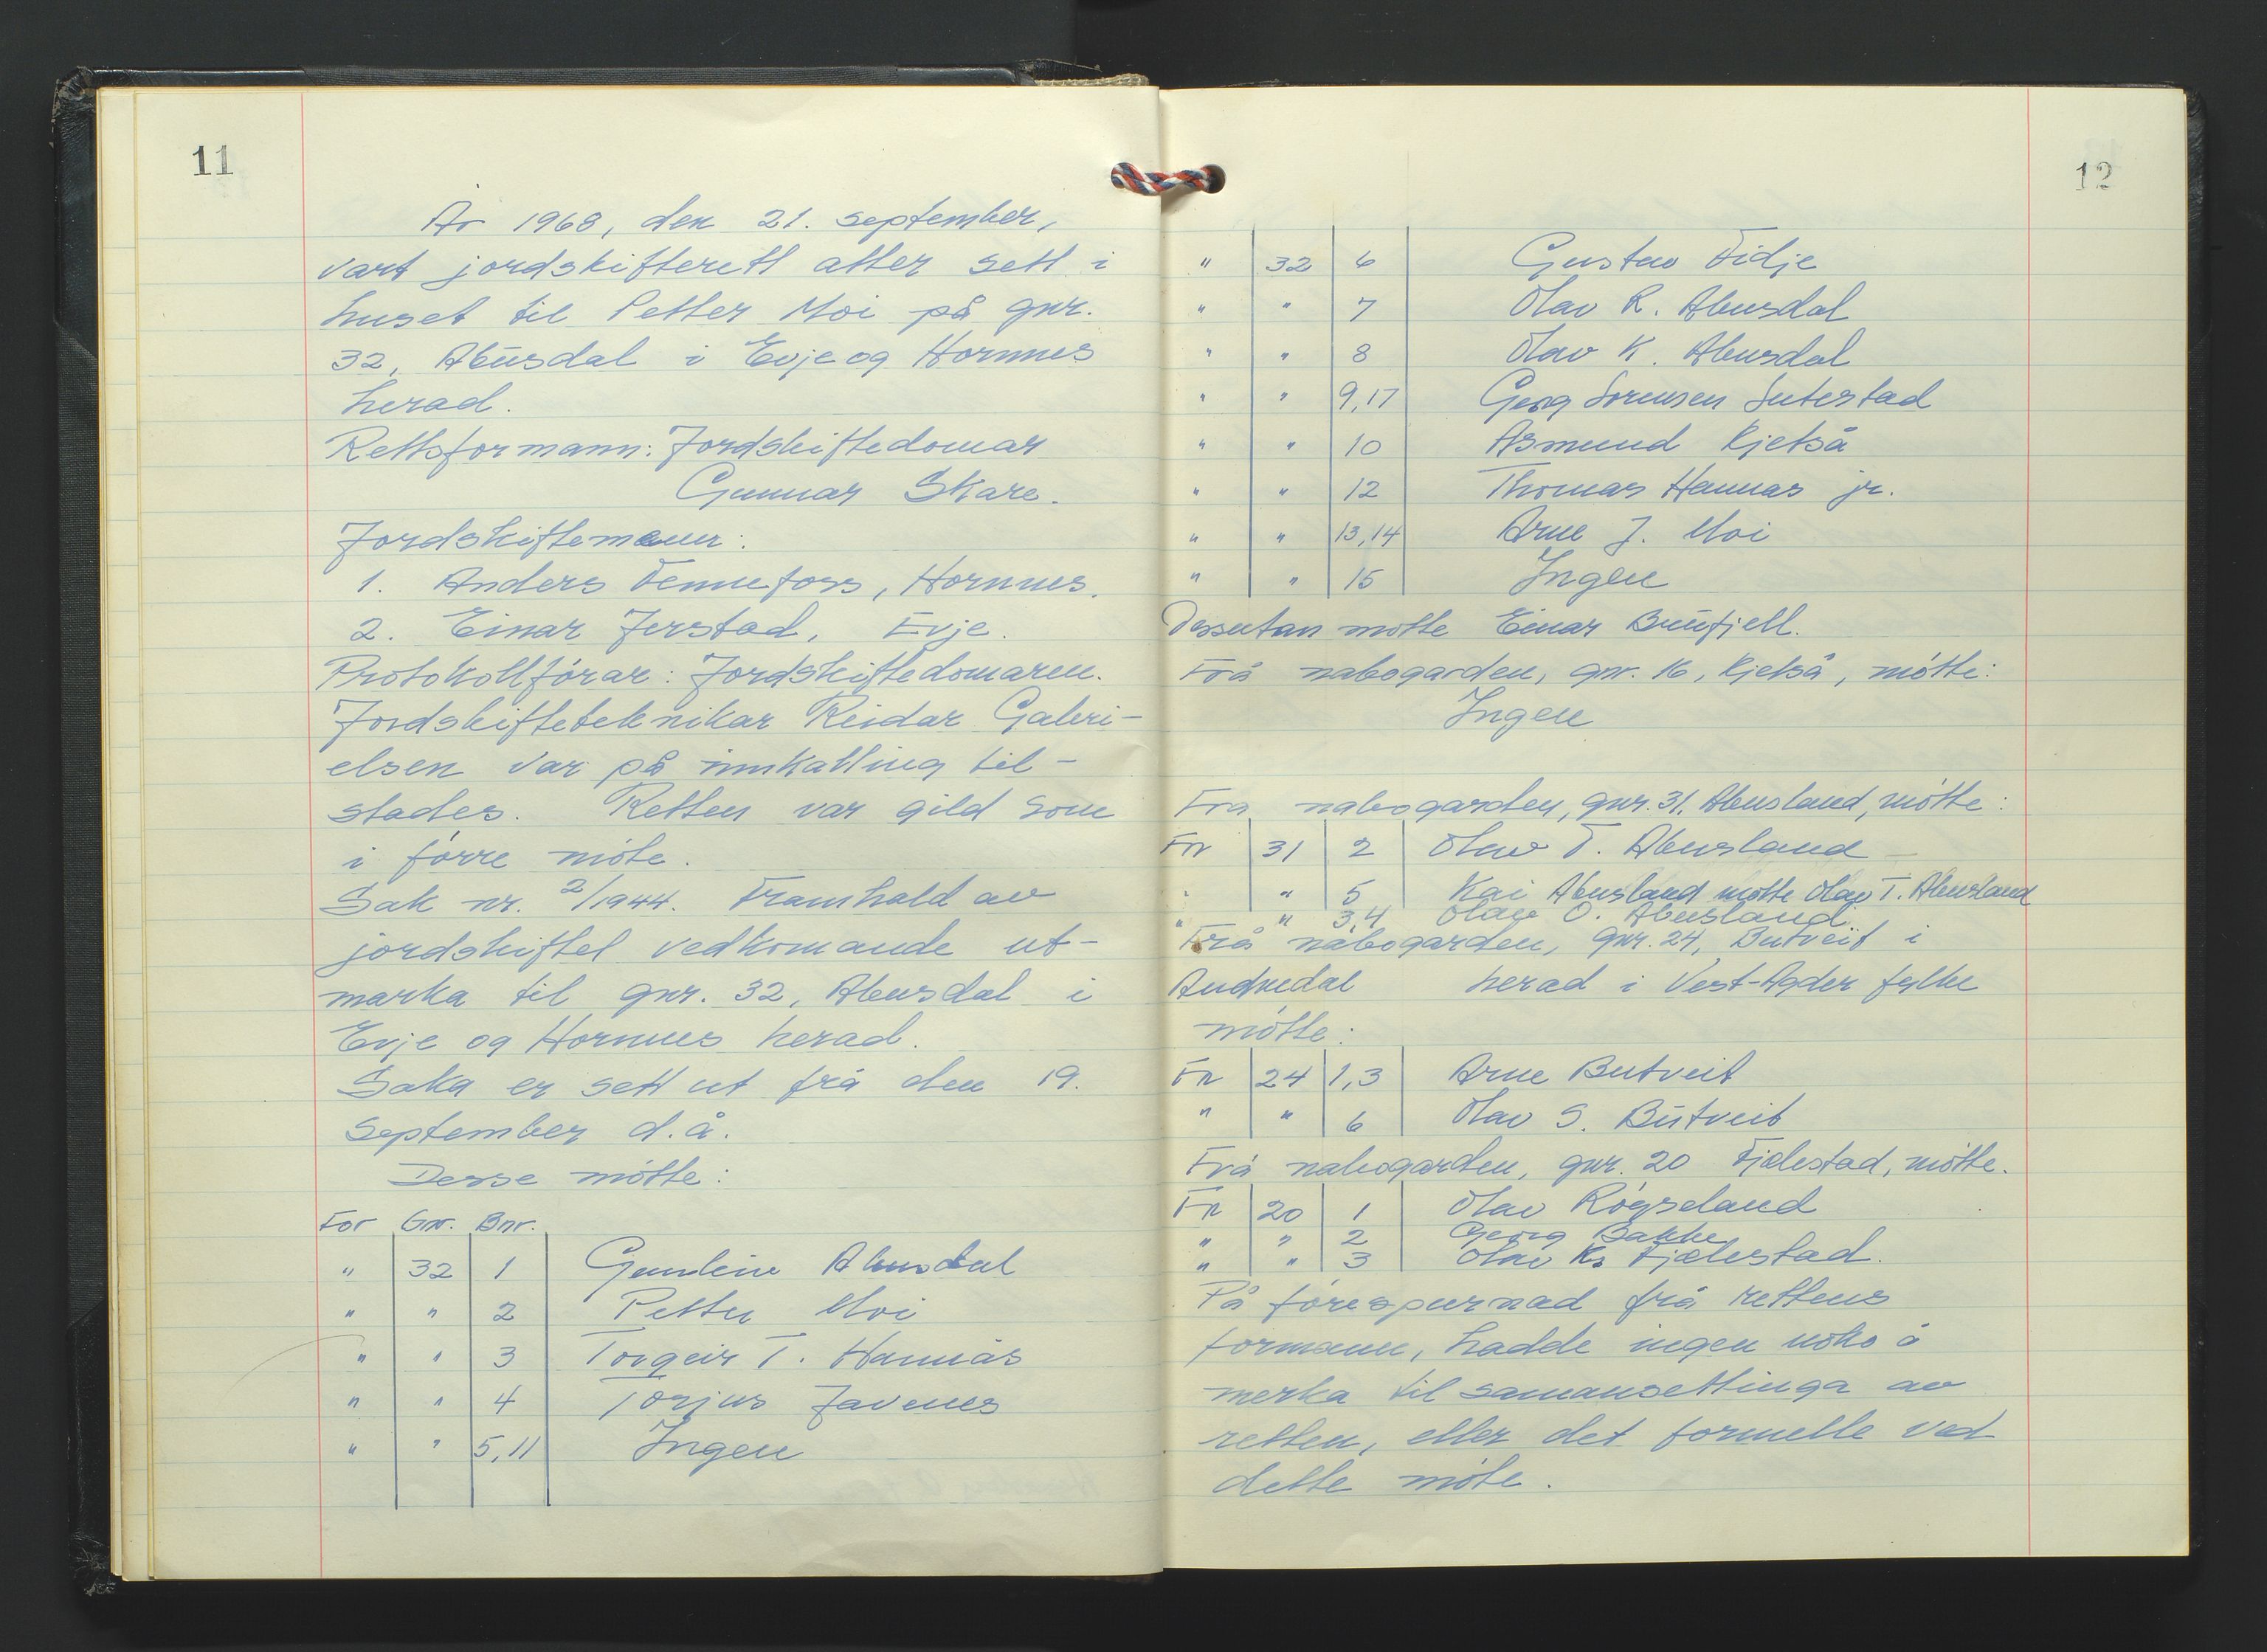 11
År 1968, den 21. september,
vart jordskifterett atter sett i
huset til Petter Moi på gnr.
32, Abusdal i Evje og Hornnes
herad.
Rettsformann: Jordskiftedomar
Gunnar Skare.
Jordskiftemenn:
1. Anders Fennefoss, Hornnes.
2. Einar Jerstad, Evje.
Protokollförar: Jordskiftedomaren.
Jordskifteteknikar Reidar Gabri-
elsen var på innkalling til-
stades. Retten var gild som
i förre möte.
Sak nr. 2/1944. Framhald av
jordskiftet vedkomande ut-
marka til gnr. 32, Abusdal i
Evje og Hornnes herad.
Saka er sett ut frå den 19.
september d.å.
Desse mötte:
For Gnr. Bnr.
" 32 1 Gunleiv Abusdal
" " 2 Petter Moi
" " 3 Torgeir T. Hannås
" " 4 Torjus Favenes
" " 5,11 Ingen
12
" 32 6 Gustav Fidje
" " 7 Olav R. Abusdal
" " 8 Olav K. Abusdal
" " 9,17 Georg Sorensen Sutestad
" " 10 Asmund Kjetså
" " 12 Thomas Hannas jr.
" " 13,14 Arne J. Moi
" " 15 Ingen
Dessutan møtte Einar Buufjell.
Frå nabogarden, gnr. 16, Kjetså, mötte:
Ingen
Fra nabogarden, gnr. 31, Abusland, mötte:
For 31 2 Olav T. Abusland
" " 5 Kai Abusland møtte Olav T. Abusland
" " 3,4 Olav O. Abusland
Frå nabogarden, gnr. 24, Butveit i
Audnedal herad i Vest-Agder fylke
mötte:
For 24 1,3 Arne Butveit
" " 6 Olav S. Butveit
Frå nabogarden, gnr. 20 Fjælestad, mötte.
For 20 1 Olav Rögseland
" " 2 Georg Bakke
" " 3 Olav K. Fjælestad.
På förespurnad frå rettens
formann, hadde ingen noko å
merka til samansettinga av
retten, eller det formelle ved
dette möte.